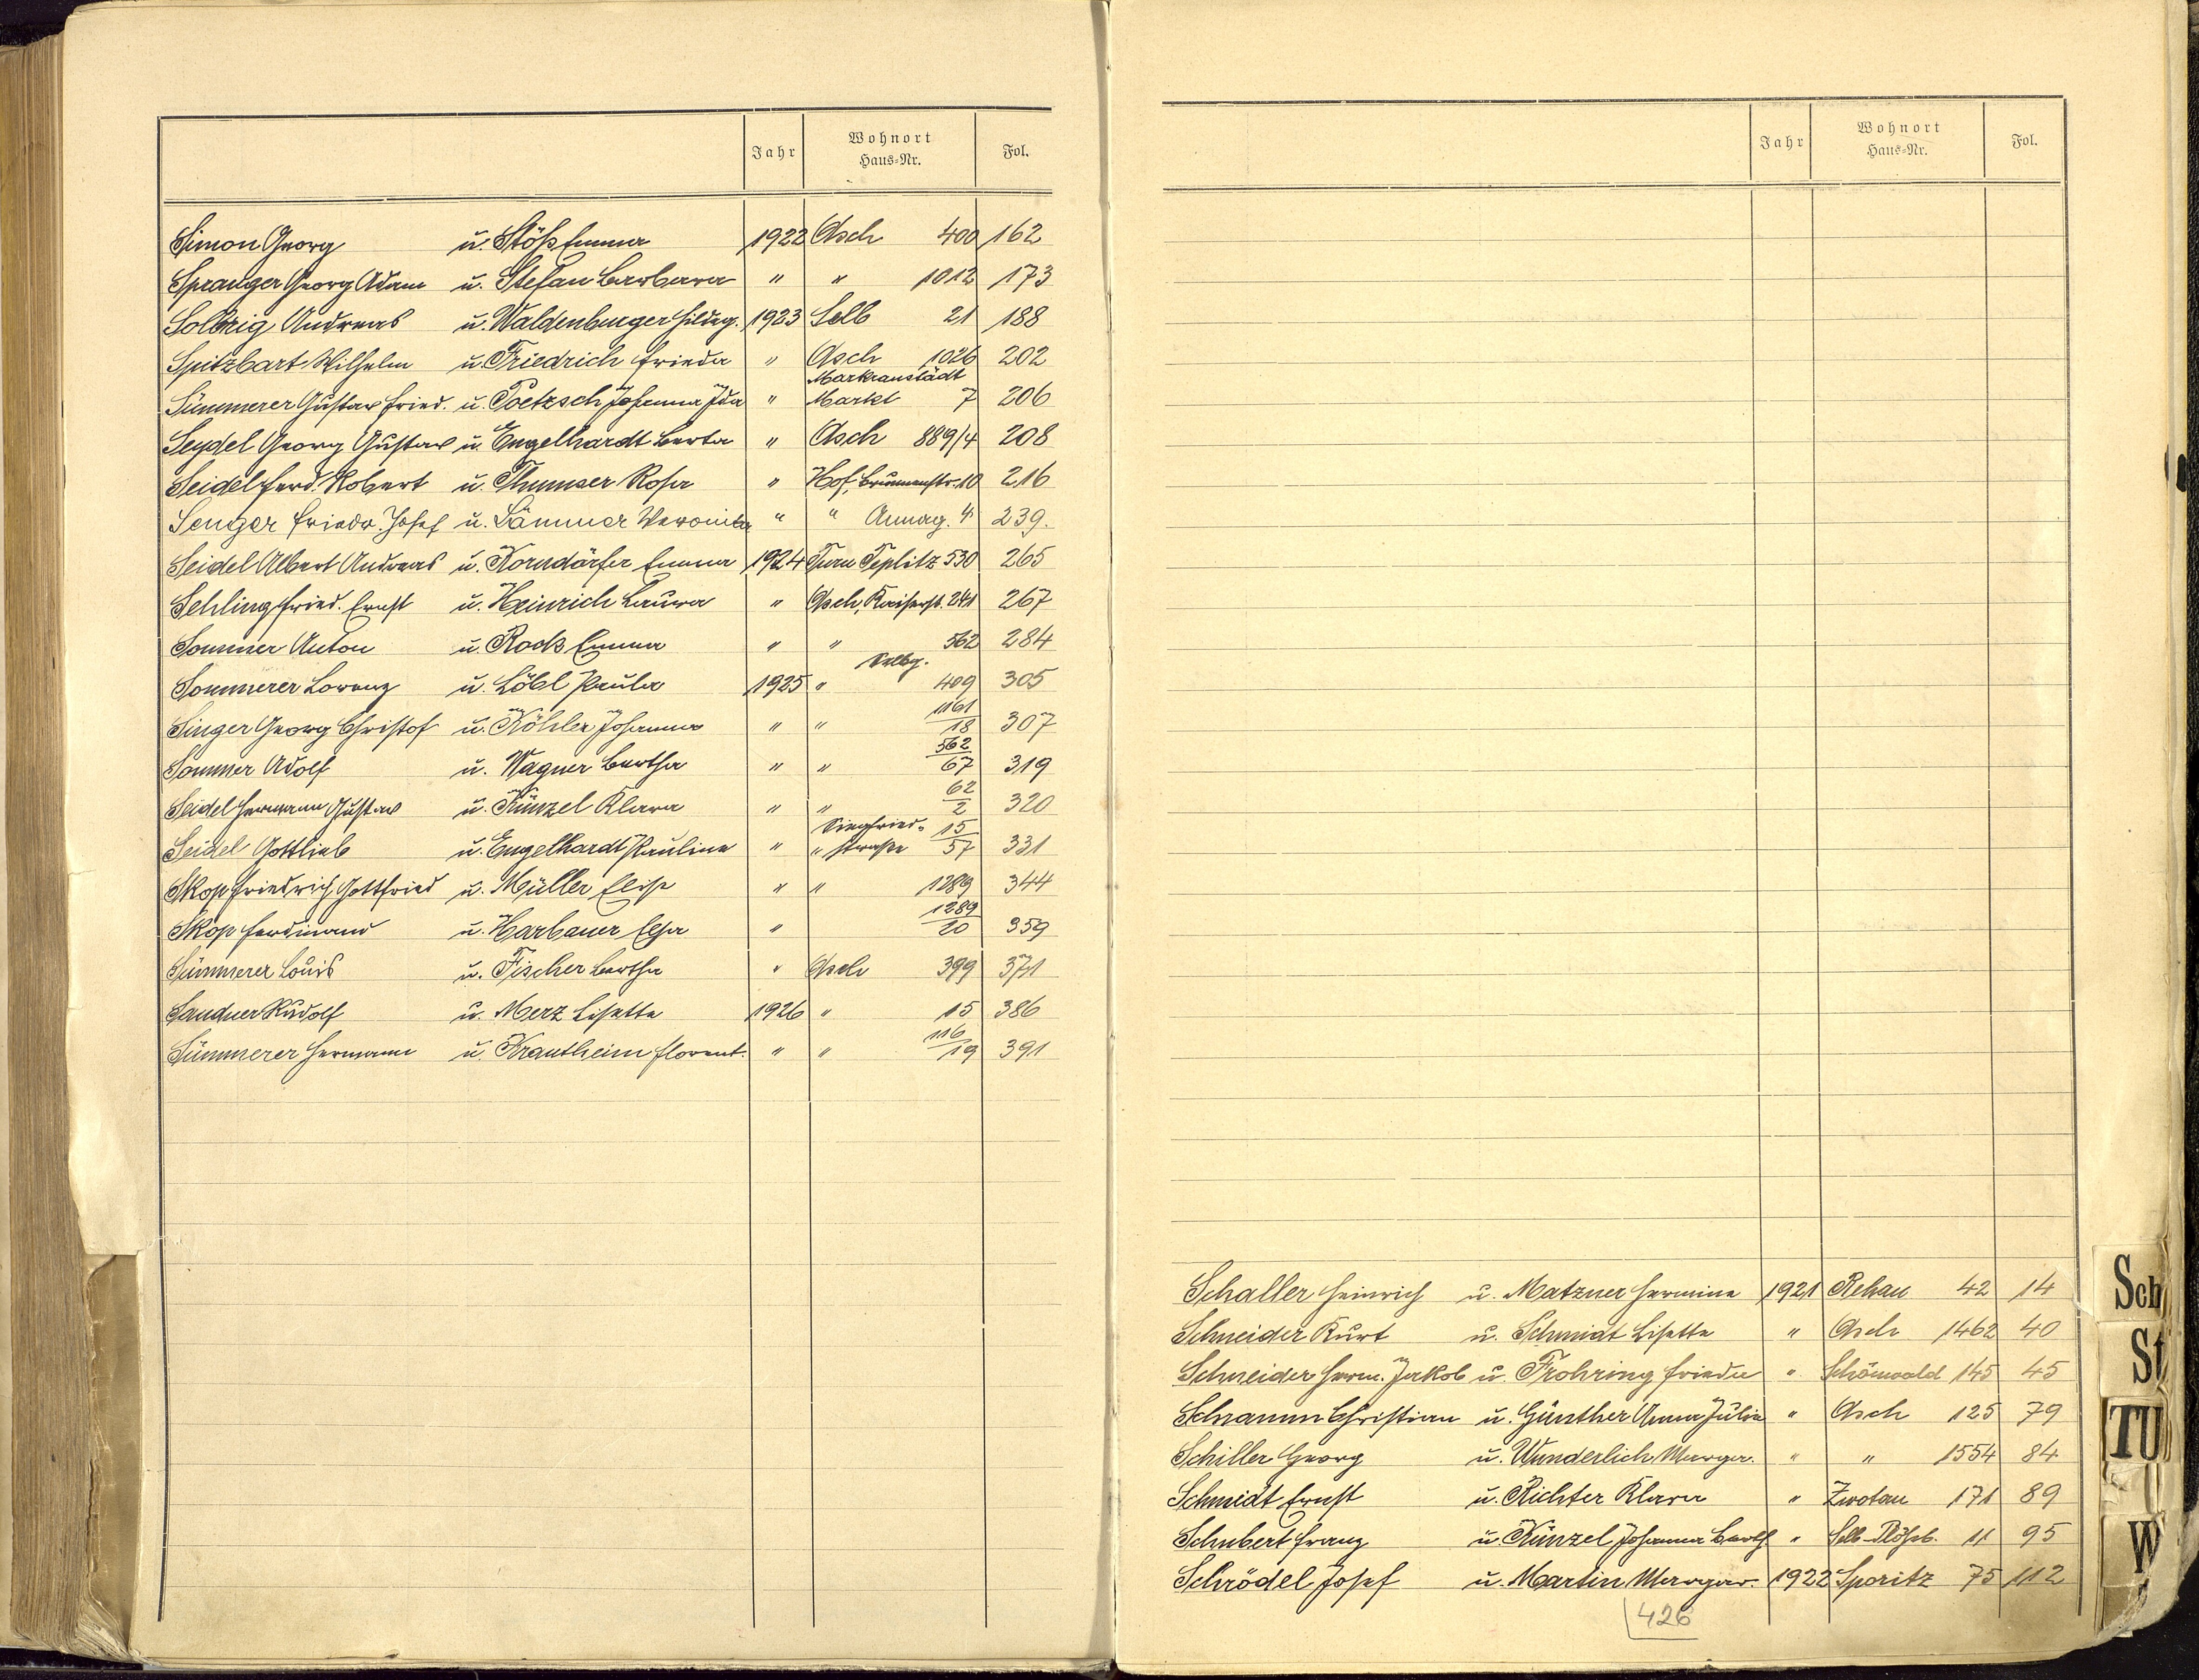 Jahr Wohnort Haus-Nr. Fol.
Simon Georg u. Stöß Emma 1922 Asch 400 162
Spranger Georg Adam u. Stefan Barbara " " 1012 173
Solbrig Andreas u. Waldenburger Hildeg. 1923 Selb 21 188
Spitzbart Wilhelm u. Friedrich Frieda " Asch 1026 202
Markranstädt
Sümmerer Gustav Fried. u. Poetzsch Johanna Ida " Markt 7 206
Seydel Georg Gustav u. Engelhardt Berta " Asch 889/4 208
Seidel Ferd. Robert u. Thumser Rosa " Hof, Brunnenstr. 10 216
Senger Friedr. Josef u. Sämmer Veronika " " Annag. 4 239.
Seidel Albert Andreas u. Korndörfer Emma 1924 Turn Teplitz 530 265
Sehling Fried. Ernst u. Heinrich Laura " Asch, Kaiserst. 241 267
Sommer Anton u. Rock Emma " " 562 284
Selbg.
Sommerer Lorenz u. Löbl Paula 1925 " 409 305
Singer Georg Christof u. Köhler Johanna " " 1161/18 307
Sommer Adolf u. Wagner Bertha " " 562/67 319
Seidel Hermann Gustav u. Künzel Klara " " 62/2 320
Siegfried-
Seidel Gottlieb u. Engelhardt Pauline " " straße 15/57 331
Skop Friedrich Gottfried u. Müller Elise " " 1289 344
Skop Ferdinand u. Harbauer Elsa " 1289/20 359
Sümmerer Louis u. Fischer Bertha " Asch 399 371
Sandner Rudolf u. Merz Lisette 1926 " 15 386
Sümmerer Hermann u. Krautheim Florent. " " 116/19 391
Jahr Wohnort Haus-Nr. Fol.
Schaller Heinrich u. Matzner Hermine 1921 Rehau 42 14
Schneider Kurt u. Schmidt Lisette " Asch 1462 40
Schneider Herm. Jakob u. Frohring Frieda " Schönwald 145 45
Schramm Christian u. Günther Anna Julie " Asch 125 79
Schiller Georg u. Wunderlich Margar. " " 1554 84
Schmidt Ernst u. Richter Klara " Zwotau 171 89
Schubert Franz u. Künzel Johanna Berth. " Selb-Plößb. 11 95
Schrödel Josef u. Martin Margar. 1922 Sporitz 75 112
426
Sch
St
TU
W